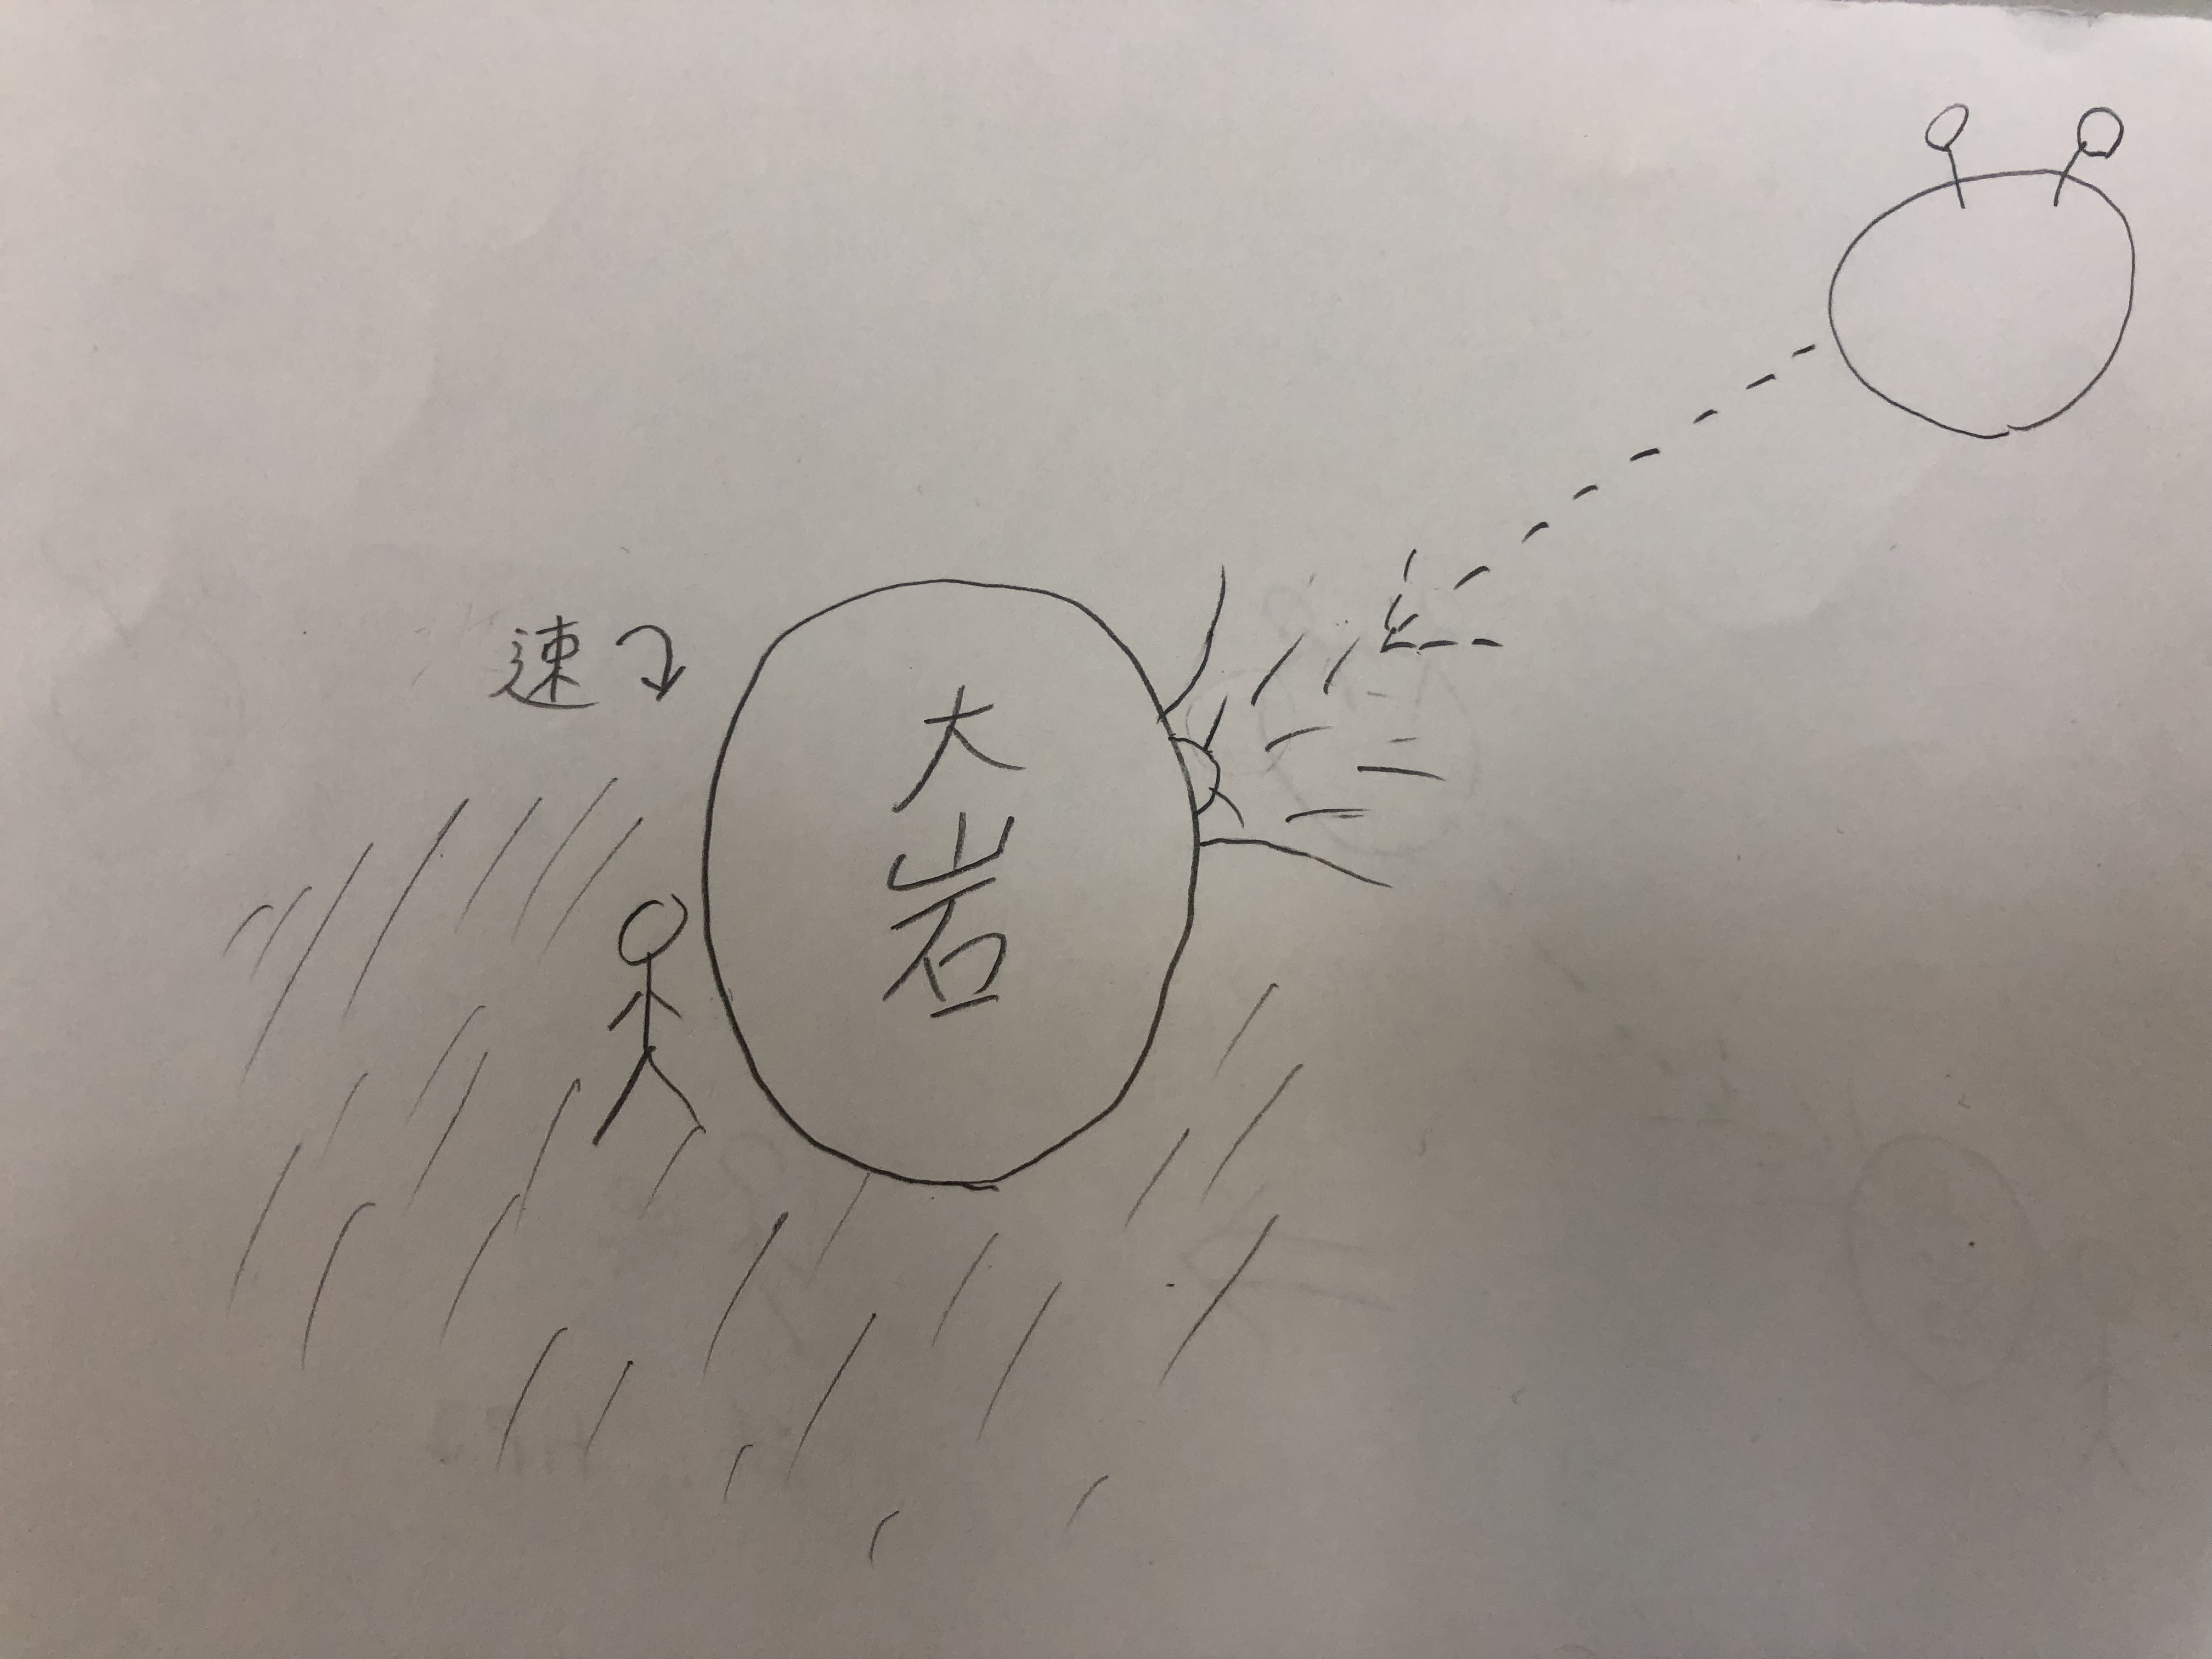 速
大
岩